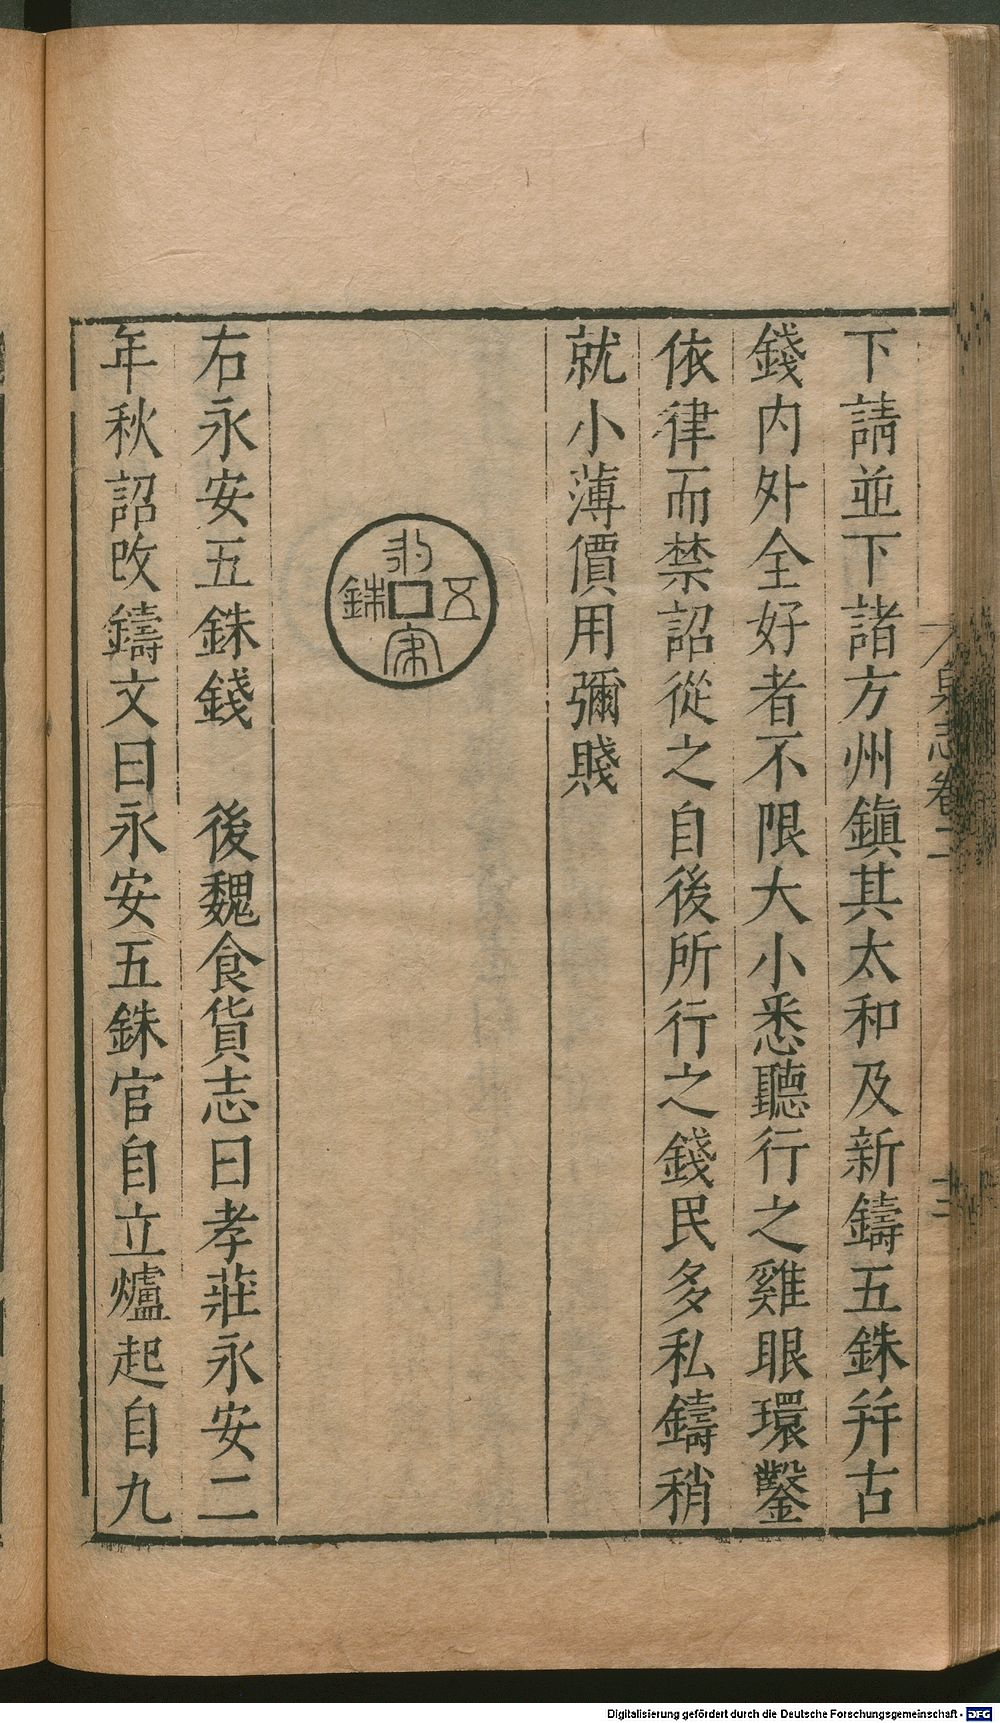 下請並下諸方州鎮其太和及新鑄五銖并古
錢内外全好者不限大小悉聽行之雞眼環鑿
依律而禁詔從之自後所行之錢民多私鑄稍
就小薄價用彌賤
永安五銖
右永安五銖錢　後魏食貨志曰孝莊永安二
年秋詔改鑄文曰永安五銖官自立爐起自九
泉志卷二
十二
Digitalisierung gefördert durch die Deutsche Forschungsgemeinschaft - DFG